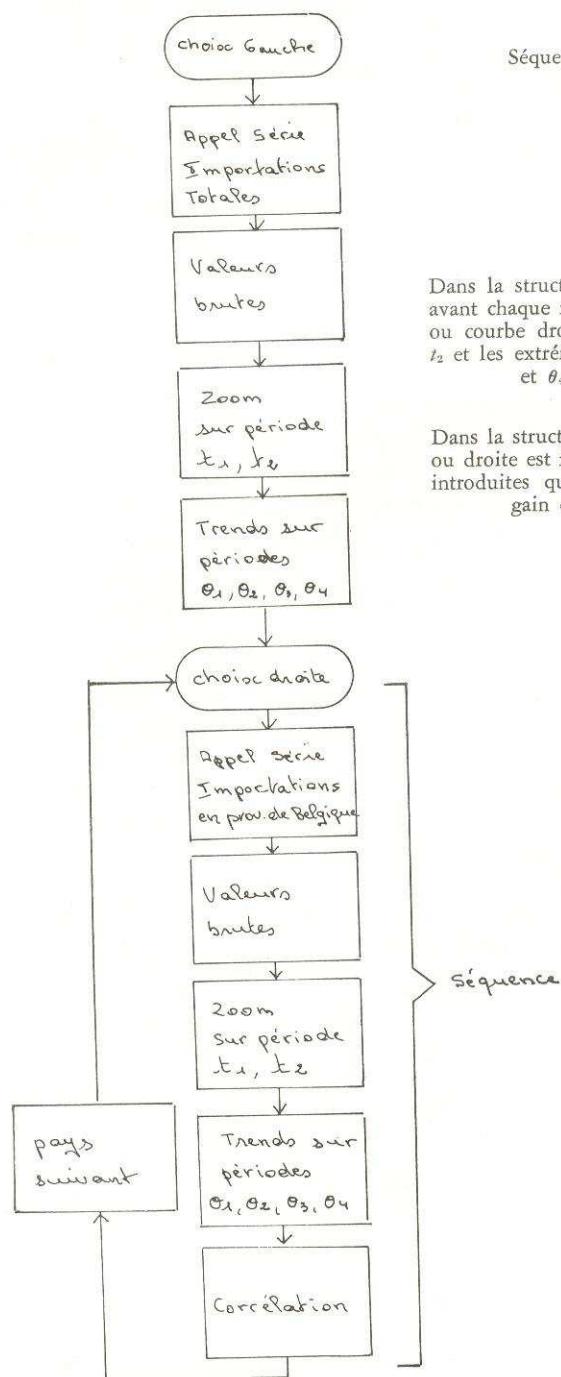 choix Gauche
Appel Série
Importations
Totales
Valeurs
brutes
Zoom
sur période
t1, t2
Trends sur
périodes
θ1, θ2, θ3, θ4
choix droite
Appel série
Importations
en prov. de Belgique
Valeurs
brutes
Zoom
sur période
t1, t2
Trends sur
périodes
θ1, θ2, θ3, θ4
Corrélation
pays
suivant
Séquence
Dans la
avant chaque
ou courbe
t2 et les
et
Dans la
ou droite est
introduites
gain